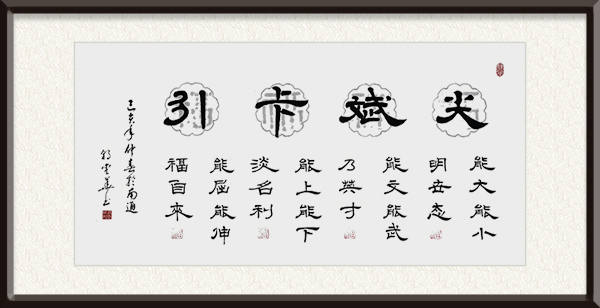 尖斌卡引
能大能小
明世态
能文能武
乃英才
能上能下
淡名利
能屈能伸
福自来
己亥年仲春於南通